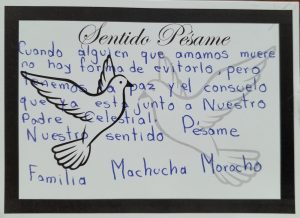 Sentido Pésame
Cuando alguien que amamos muere
no hay forma de evitarlo pero
tenemos la paz y el consuelo
que ya está junto a Nuestro
Padre Celestial.
Nuestro sentido Pésame
Familia Machucha Morocho